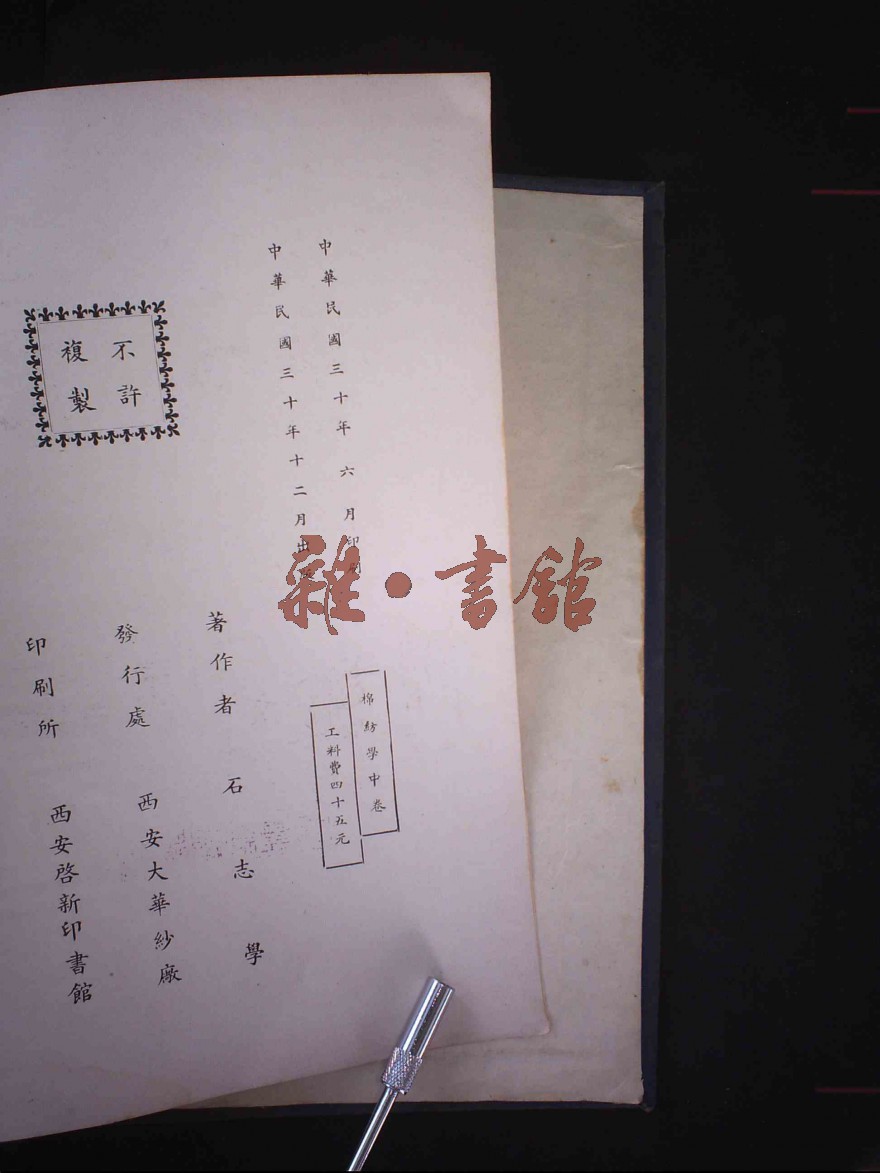 中華民國三十年六月印刷
中華民國三十年十二月出版
棉紡學中卷
工料費四十五元
著作者 石志學
發行處 西安大華紗廠
印刷所 西安啓新印書館
不許
複製
雜·書館